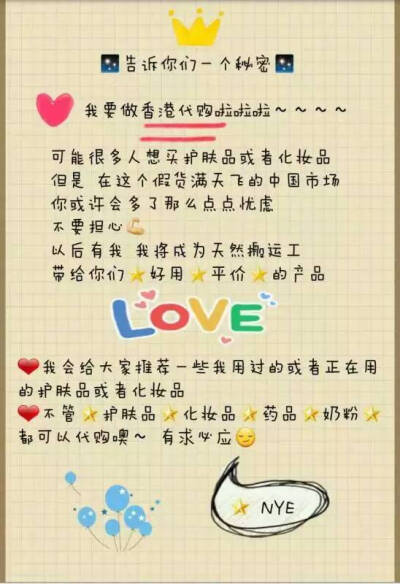 🌃告诉你们一个秘密🌃
我要做香港代购啦啦啦~~~~
可能很多人想买护肤品或者化妆品
但是 在这个假货满天飞的中国市场
你或许会多了那么点点忧虑
不要担心💪
以后有我 我将成为天然搬运工
带给你们⭐好用⭐平价⭐的产品
LOVE
❤我会给大家推荐一些我用过的或者正在用
的护肤品或者化妆品
❤不管⭐护肤品⭐化妆品⭐药品⭐奶粉⭐
都可以代购噢~ 有求必应😏
⭐ NYE